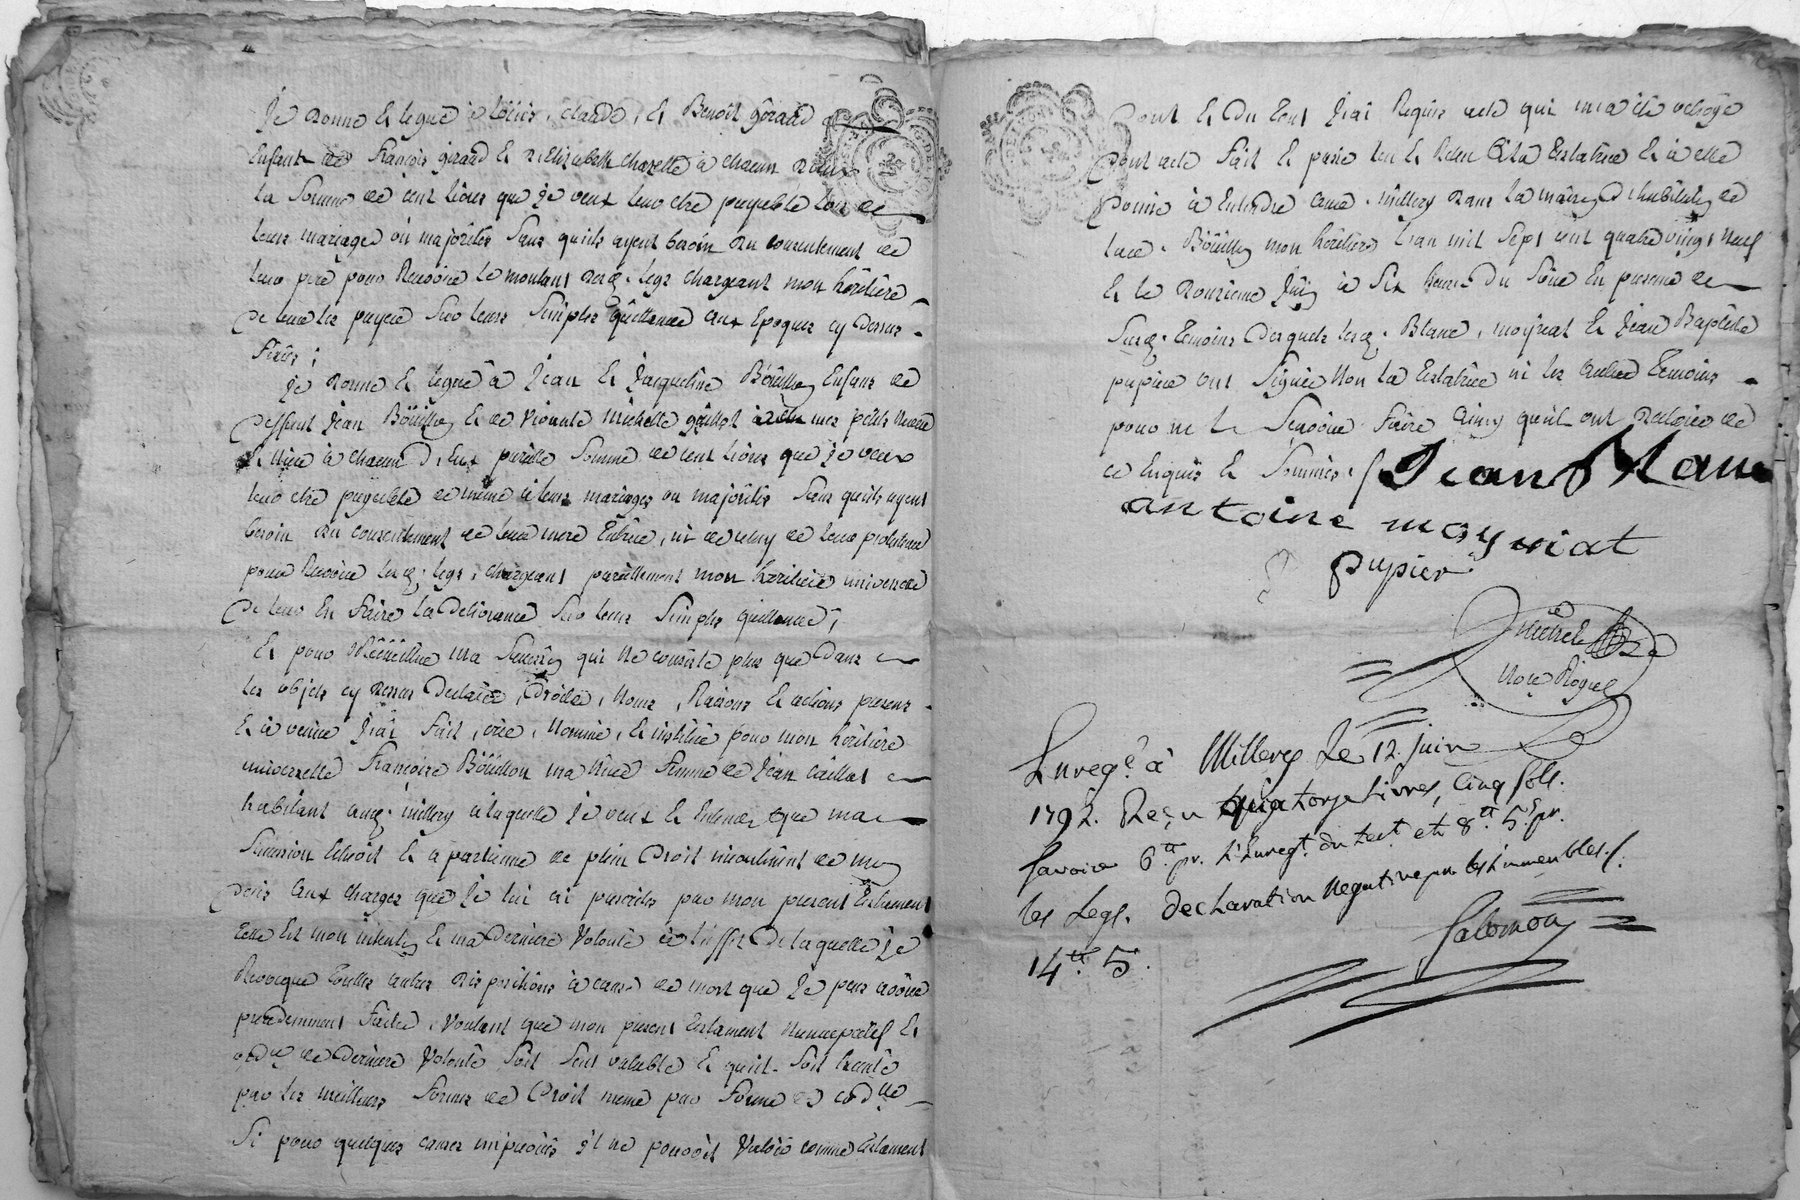 Je donne & legue à Loüis, Claude, & Benoit gérard
Enfants de François girard & d'Elizabeth Charelle à chacun d'eux
la somme de cent livres que je veux leur etre payable lors de
leurs mariages ou majorités sans quils ayent besoin du consentement de
leur pere pour Recevoir le montant desd. legs chargeant mon héritiére
de leur les payer sur leurs simples quittances aux Epoques cy dessus
fixées;
Je donne & legue à Jean & Jacqueline Boüillon Enfans de
deffunt Jean Boüillon & de vivante michelle guillot mes petits neveu
& niece à chacun d'eux pareille somme de cent livres que je veux
leur etre payable de même à leurs mariages ou majorités sans quils ayent
besoin du consentement de leur mere Tutrice, ni de celuy de leur protuteur
pour Recevoir lesd. legs, chargeant pareillement mon héritiere universelle
de leur En faire la délivrance sur leurs simples quittances;
Et pour Recüeillir ma succession qui ne consiste plus que dans
les objets cy dessus declarés, droits, noms, Raisons & actions presens
& à venir J'ai fait, crée, nommée, & instituée pour mon héritiére
universelle Françoise Boüillon ma niece femme de Jean Caillat
habitant aud. millery à laquelle je veux & Entends que ma
succession Echoit & apartienne de plein droit incontinent de mon
deces aux charges que je lui ai prescrites par mon present testament
telle Est mon intention & ma derniere volonté à l'effet de laquelle je
Revocque toutes autres dispositions à cause de mort que je peux avoir
precedemment faites, voulant que mon present testament nuncupatif &
odre de derniere volonté soit seul valable & quil soit Exécuté
par les meilleures formes de droit meme par forme de cod.lle
Si pour quelques causes imprévües il ne pouvoit valoir comme testament
dont & du tout J'ai Requis acte qui m'a été octroyé
dont acte fait & passé lu & Relu à la testatrice & à elle
donné à Entendre aud. millery dans la maison d'habitation de
lad. Boüillon mon héritiére l'an mil sept cent quatre vingt neuf
& le onzieme Juin à six heures du soir En presence de
susd. temoins desquels lesd. Blanc, moyriat & Jean Baptiste
pupier ont signés non la testatrice ni les autres temoins
pour ne le sçavoir faire ainsy quils ont déclaré de
ce Enquis & sommés.
Jean Blanc
antoine moyriat
pupier
michel
No.re Royal
Enreg.é à Millery le 12 Juin
1792. Reçu quatorze livres, cinq sols.
Savoir 6.tt pr. l'Enregt. du test. et 8.tt 5.s pr.
les Legs. declaration negative pr les immeubles.
14.tt 5.
Salomon